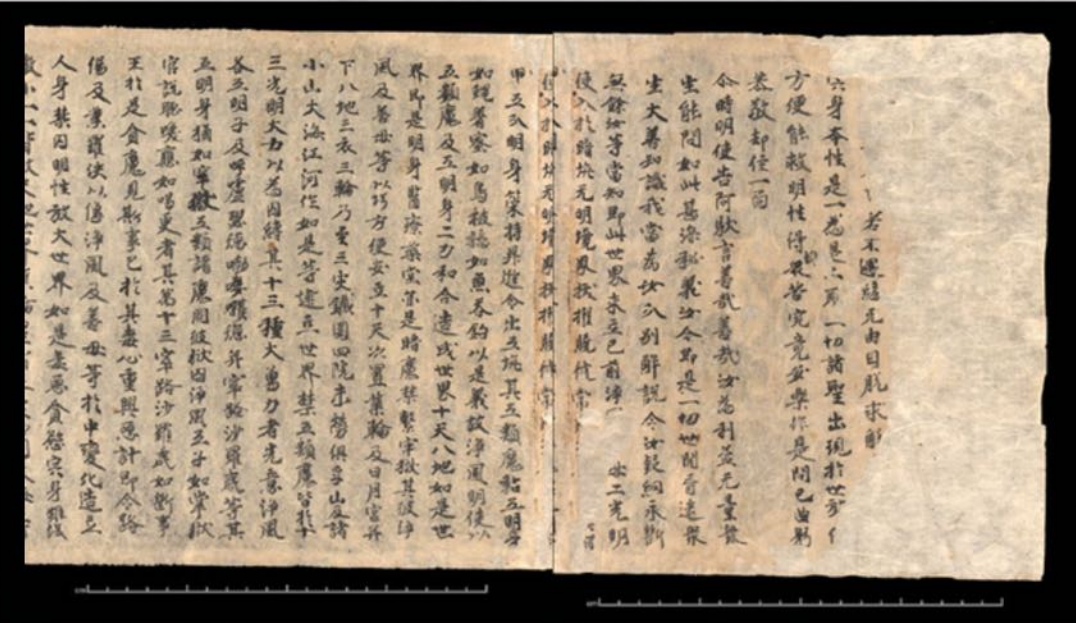 若不遇緣无由自脫求解
宍身本性是一為是二耶一切諸聖出現於世
方便能救明性得畏苦究竟安樂作是問已曲躬
恭敬却住一面
尒時明使告阿馱言善哉善哉汝為利益无量眾
生能問如此甚深秘義汝今即是一切世間盲迷眾
生大善知識我當為汝分別解說令汝疑網永斷
无餘汝等當知即此世界未立已前淨 二光明
使入於暗坑无明境界拔擢驍健常
甲五分明身策持昇進令出五坑其五類魔黏五明身
如蠅著蜜如鳥被黐如魚吞鉤以是義故淨風明使以
五類魔及五明身二力和合造成世界十天八地如是世
界即是明身醫療藥堂亦是暗魔禁繫牢獄其彼淨
風及善母等以巧方便安立十天次置業輪及日月宮并
下八地三衣三輪乃至三灾鐵圍四院未勞俱孚山及諸
小山大海江河作如是等建立世界禁五類魔皆於十
三光明大力以為囚縛其十三種大勇力者先意淨風
各五明子及呼嚧瑟德嘞嚤獲德并窣路沙羅夷等其
五明身猶如牢獄五類諸魔同彼獄囚淨風五子如掌獄
官說聽喚應如喝更者其第十三窣路沙羅夷如斷事
王於是貪魔見斯事已於其毒心重興惡計即令路
傷及業羅泱以像淨風及善母等於中變化造立
人身禁囚明性放大世界如是毒惡貪慾宍身雖復